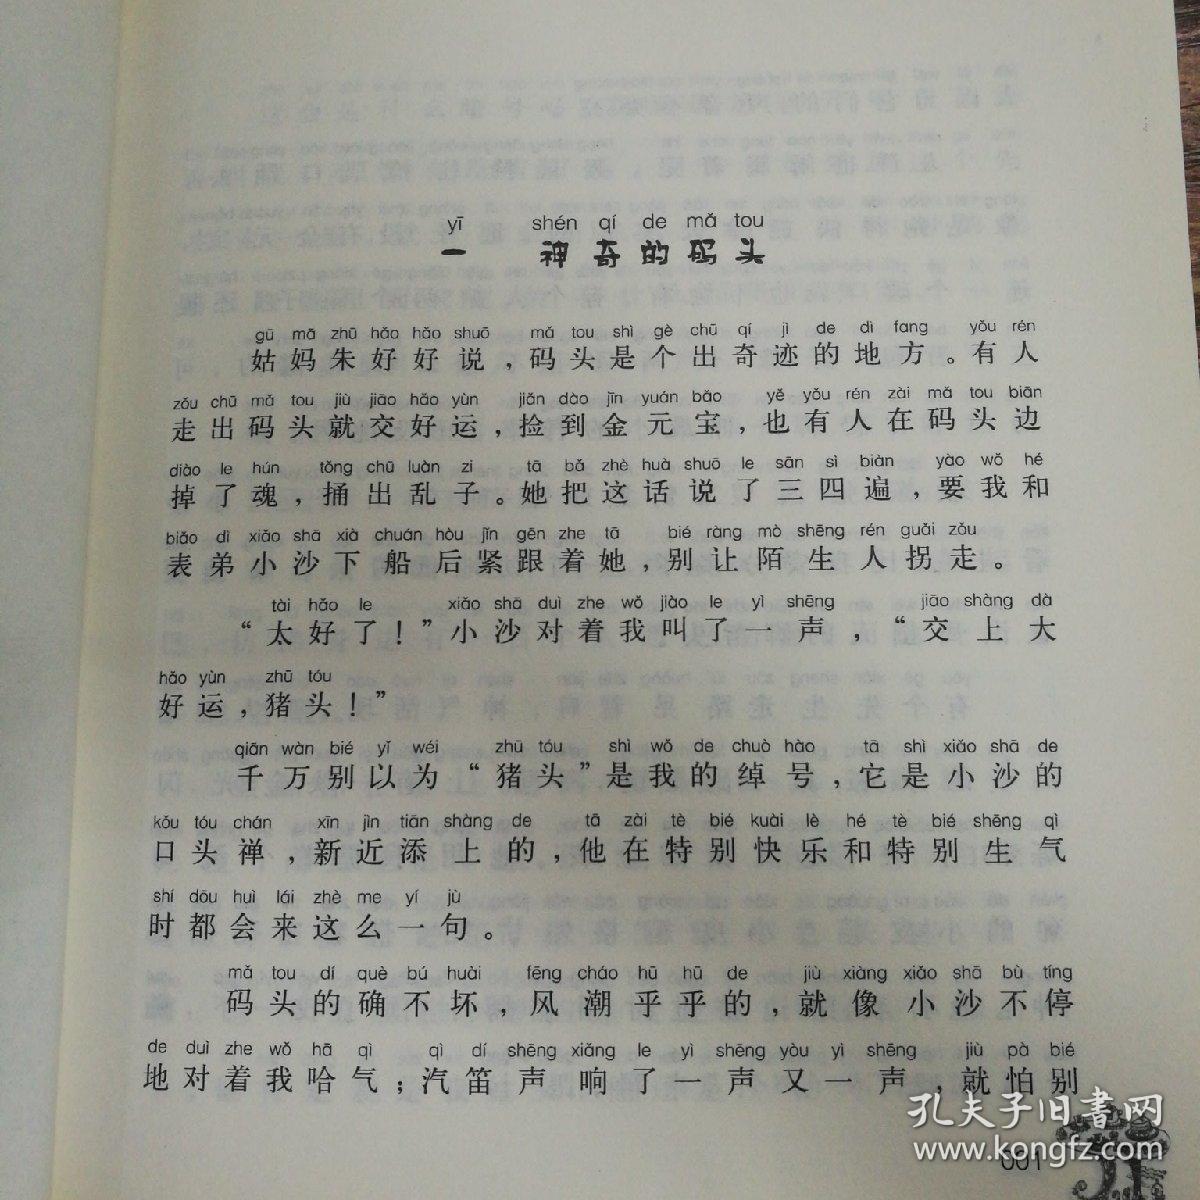 yī shén qí de mǎ tou
一 神奇的码头
gū mā zhū hǎo hǎo shuō mǎ tou shì gè chū qí jì de dì fang yǒu rén
姑妈朱好好说，码头是个出奇迹的地方。有人
zǒu chū mǎ tou jiù jiāo hǎo yùn jiǎn dào jīn yuán bǎo yě yǒu rén zài mǎ tou biān
走出码头就交好运，捡到金元宝，也有人在码头边
diào le hún tǒng chū luàn zi tā bǎ zhè huà shuō le sān sì biàn yào wǒ hé
掉了魂，捅出乱子。她把这话说了三四遍，要我和
biǎo dì xiǎo shā xià chuán hòu jǐn gēn zhe tā bié ràng mò shēng rén guǎi zǒu
表弟小沙下船后紧跟着她，别让陌生人拐走。
tài hǎo le xiǎo shā duì zhe wǒ jiào le yì shēng jiāo shàng dà
“太好了！”小沙对着我叫了一声，“交上大
hǎo yùn zhū tóu
好运，猪头！”
qiān wàn bié yǐ wéi zhū tóu shì wǒ de chuò hào tā shì xiǎo shā de
千万别以为“猪头”是我的绰号，它是小沙的
kǒu tóu chán xīn jìn tiān shàng de tā zài tè bié kuài lè hé tè bié shēng qì
口头禅，新近添上的，他在特别快乐和特别生气
shí dōu huì lái zhè me yí jù
时都会来这么一句。
mǎ tou dí què bú huài fēng cháo hū hū de jiù xiàng xiǎo shā bù tíng
码头的确不坏，风潮乎乎的，就像小沙不停
de duì zhe wǒ hā qì qì dí shēng xiǎng le yì shēng yòu yì shēng jiù pà bié
地对着我哈气；汽笛声响了一声又一声，就怕别
孔夫子旧书网
www.kongfz.com
001